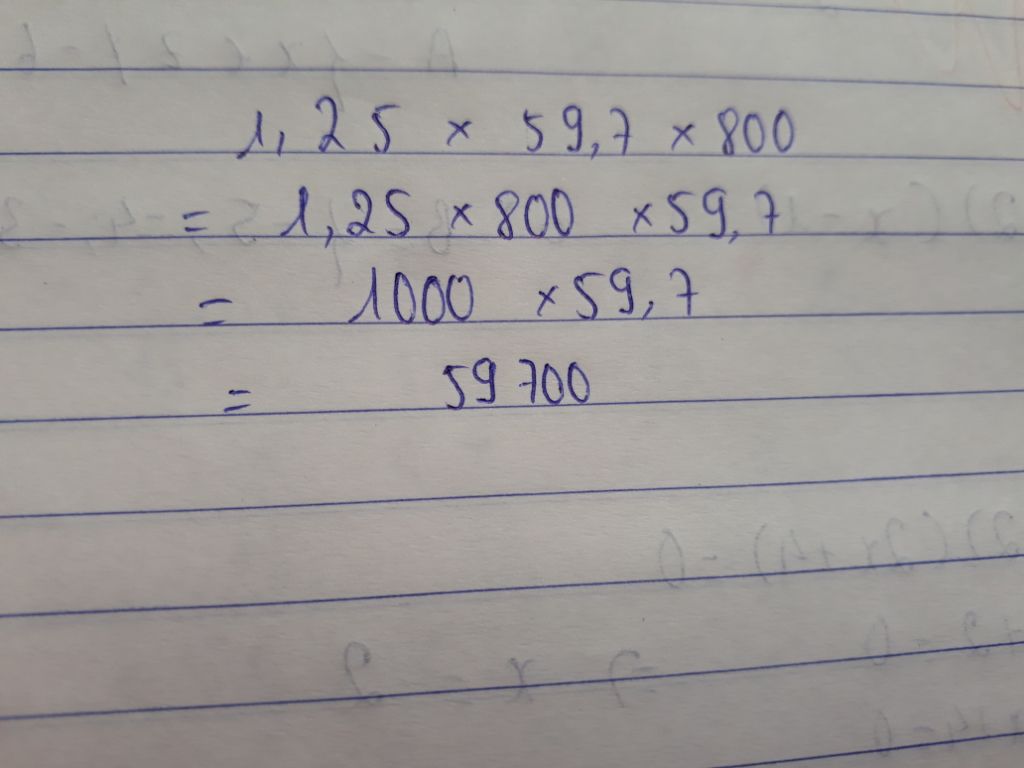 1,25 × 59,7 × 800
= 1,25 × 800 × 59,7
= 1000 × 59,7
= 59 700